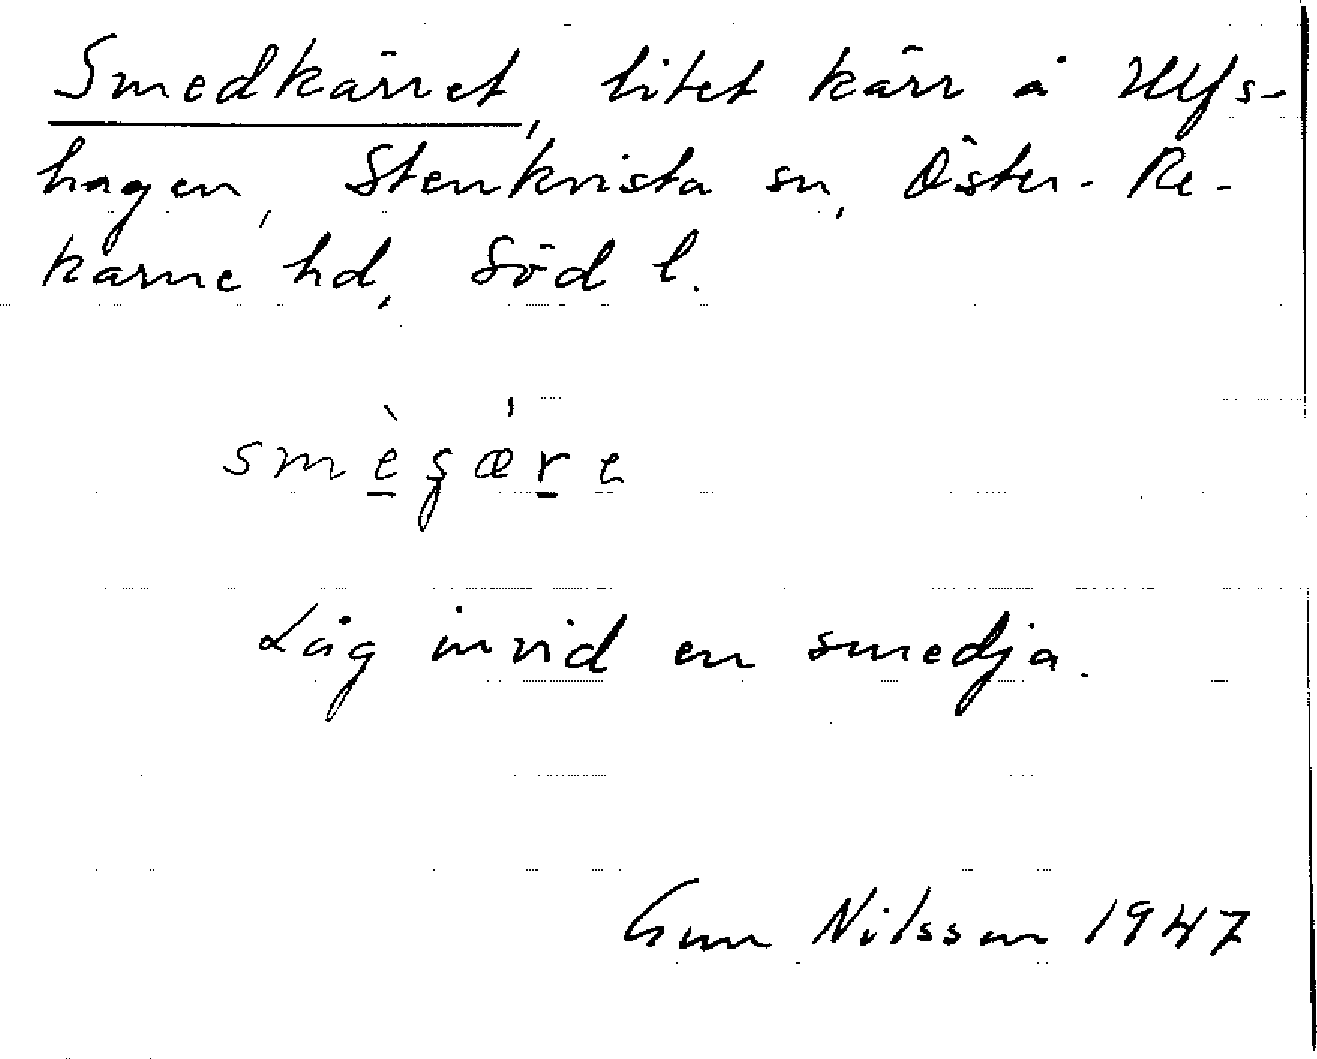 Smedkärret, litet kärr å Ulfs-
hagen, Stenkvista sn, Öster-Re-
karne hd, Söd l.
smèçǽre
Låg invid en smedja.
Gun Nilsson 1947